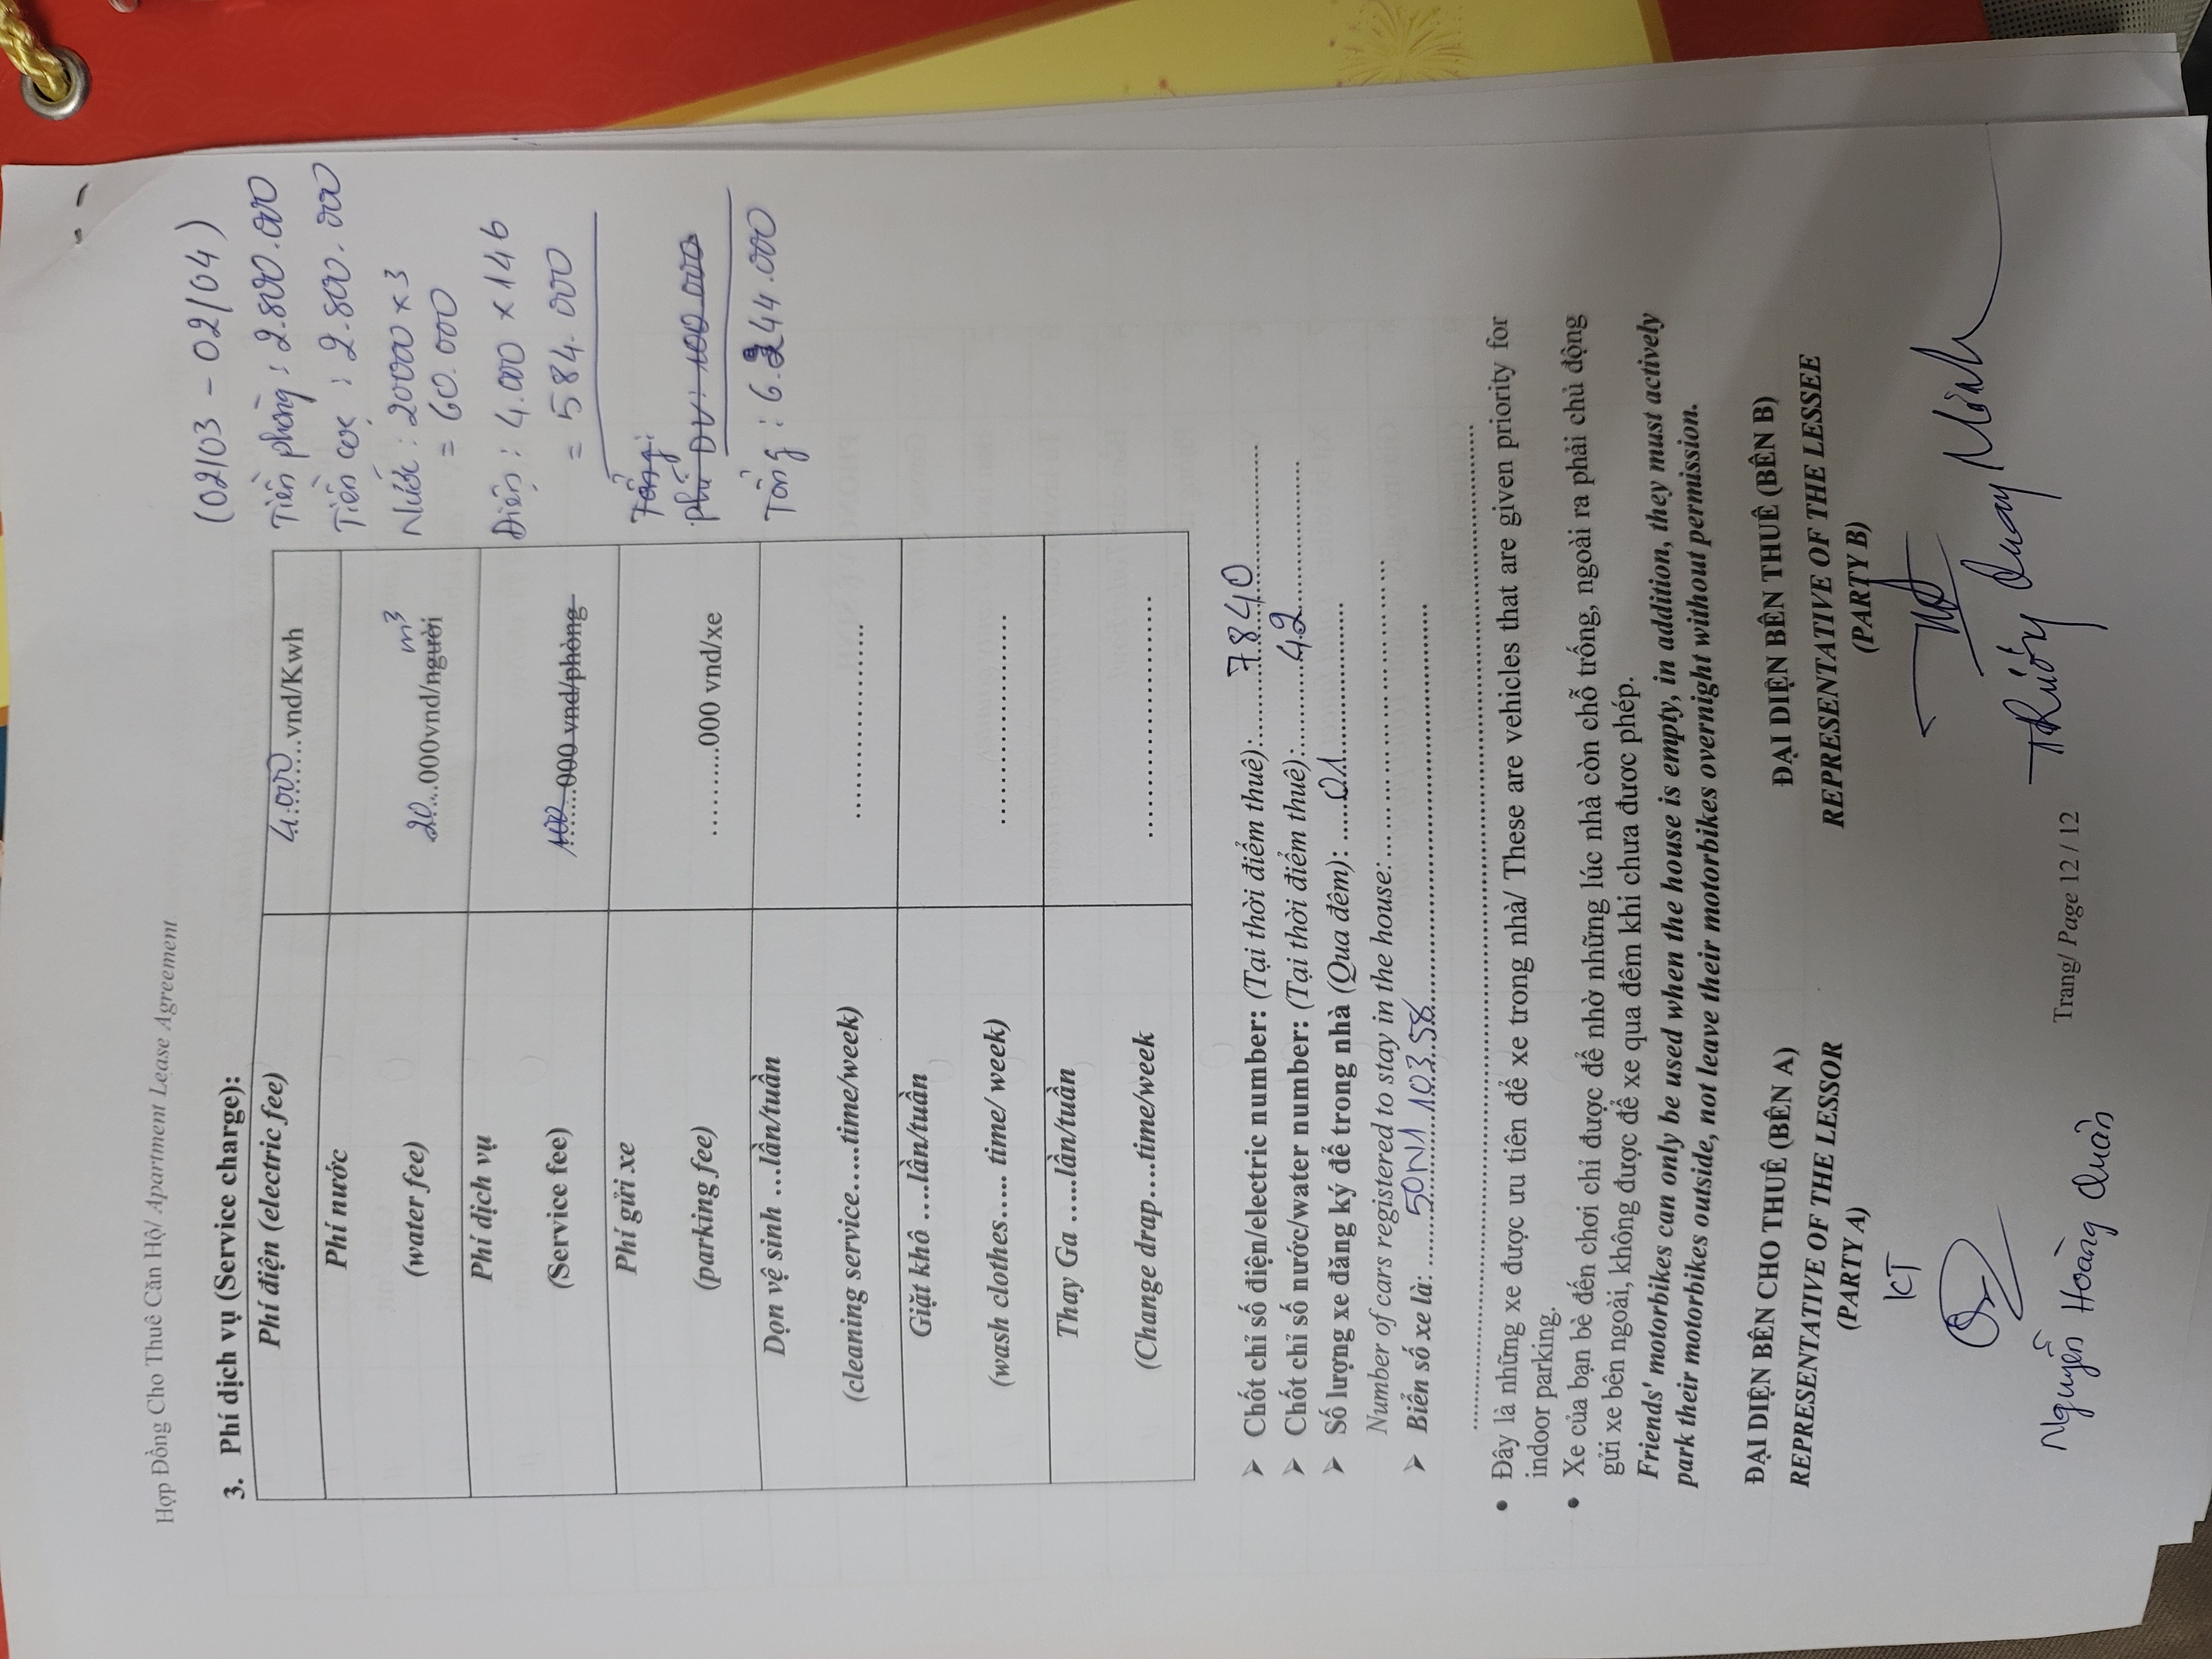 Hợp Đồng Cho Thuê Căn Hộ/ Apartment Lease Agreement
(02/03 - 02/04)
3. Phí dịch vụ (Service charge):
Phí điện (electric fee)
4.000...vnd/Kwh
Phí nước
(water fee)
m³
20...000vnd/người
Phí dịch vụ
(Service fee)
100...000 vnd/phòng
Phí gửi xe
(parking fee)
..........000 vnd/xe
Dọn vệ sinh ...lần/tuần
(cleaning service.....time/week)
........................
Giặt khô ....lần/tuần
(wash clothes...... time/ week)
........................
Thay Ga .....lần/tuần
(Change drap....time/week
........................
Tiền phòng : 2.800.000
Tiền cọc : 2.800.000
Nước : 20000 x 3
= 60.000
Điện : 4.000 x 146
= 584.000
Tổng:
Phí DV: 100.000
Tổng : 6.244.000
➢ Chốt chỉ số điện/electric number: (Tại thời điểm thuê):............7840................
➢ Chốt chỉ số nước/water number: (Tại thời điểm thuê):............42................
➢ Số lượng xe đăng ký để trong nhà (Qua đêm): ......01................
Number of cars registered to stay in the house:................................
➢ Biển số xe là: .......50N1 103.58................................
................................................................
• Đây là những xe được ưu tiên để xe trong nhà/ These are vehicles that are given priority for
indoor parking.
• Xe của bạn bè đến chơi chỉ được để nhờ những lúc nhà còn chỗ trống, ngoài ra phải chủ động
gửi xe bên ngoài, không được để xe qua đêm khi chưa được phép.
Friends' motorbikes can only be used when the house is empty, in addition, they must actively
park their motorbikes outside, not leave their motorbikes overnight without permission.
ĐẠI DIỆN BÊN CHO THUÊ (BÊN A)
REPRESENTATIVE OF THE LESSOR
(PARTY A)
KT
Nguyễn Hoàng Quân
ĐẠI DIỆN BÊN THUÊ (BÊN B)
REPRESENTATIVE OF THE LESSEE
(PARTY B)
Trương Quay Minh
Trang/ Page 12 / 12